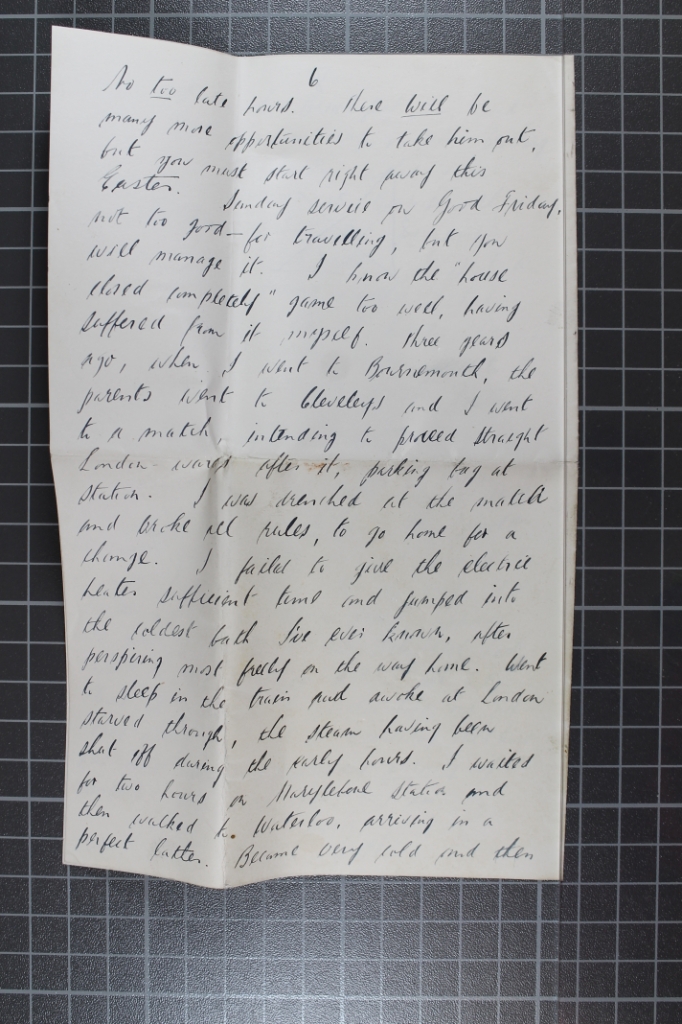 6
No too late hours. There will be
many more opportunities to take him out,
but you must start right away this
Easter. Sunday service on Good Friday,
not too good — for travelling, but you
will manage it. I know the "house
closed completely" game too well, having
suffered from it myself. Three years
ago, when I went to Bournemouth, the
parents went to Cleveleys and I went
to a match, intending to proceed straight
London-wards after it, parking bag at
station. I was drenched at the match
and broke all rules, to go home for a
change. I failed to give the electric
heater sufficient time and jumped into
the coldest bath I've ever known, after
perspiring most freely on the way home. Went
to sleep in the train and awoke at London
starved through, the steam having been
shut off during the early hours. I waited
for two hours on Marylebone Station and
then walked to Waterloo, arriving in a
perfect lather. Became very cold and then